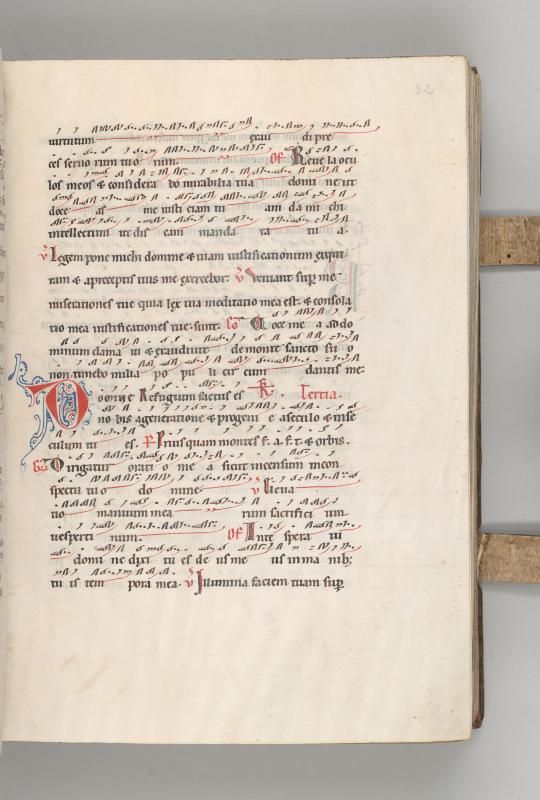 32
virtutum erau di pre
ces servo rum tuo rum. Of Reue la ocu
los meos & considera bo mirabilia tua domi ne ut
doce as me iusti ciam tu am da mi chi
intellectum ut dis cam manda ta tu a.
V Legem pone michi domine & uiam iustificationum exqui
ram & a preceptis tuis me exercebor. V Veniant sup me
miserationes tue quia lex tua meditatio mea est. & consola
tio mea iustificationes tue sunt. Co Uoce me a ad do
minum clama ui & exaudiuit de monte sancto su o
non timebo milia po pu li cir cum dantis me.
Domine Refugium factus es Tercia.
no bis a generatione & progeni e a seculo & in se
culum tu es. Priusquam montes f. a. f. t. & orbis.
Dirigatur orati o me a sicut incensum in con
spectu tuo do mine. V Eleua
tio manuum mea rum sacrifici um
uesperti num. Of In te spera ui
domi ne dixi tu es de us me us in ma nib;
tu is tem pora mea. V Illumina faciem tuam sup